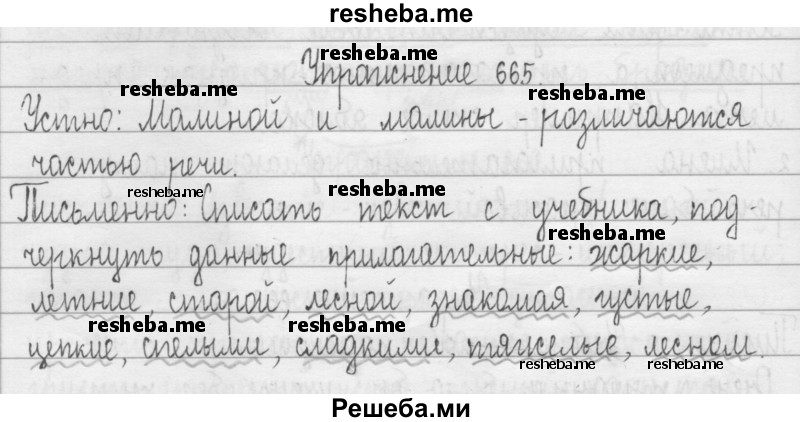 resheba.me
resheba.me
Упражнение 665.
resheba.me
resheba.me
Устно: Малиной и малины - различаются
частью речи.
resheba.me
resheba.me
Письменно: Списать текст с учебника, под-
resheba.me
черкнуть данные прилагательные: жаркие,
летние, старой, лесной, знакомая, густые,
resheba.me
resheba.me
цепкие, спелыми, сладкими, тяжелые, лесном.
resheba.me
resheba.me
Решеба.ми